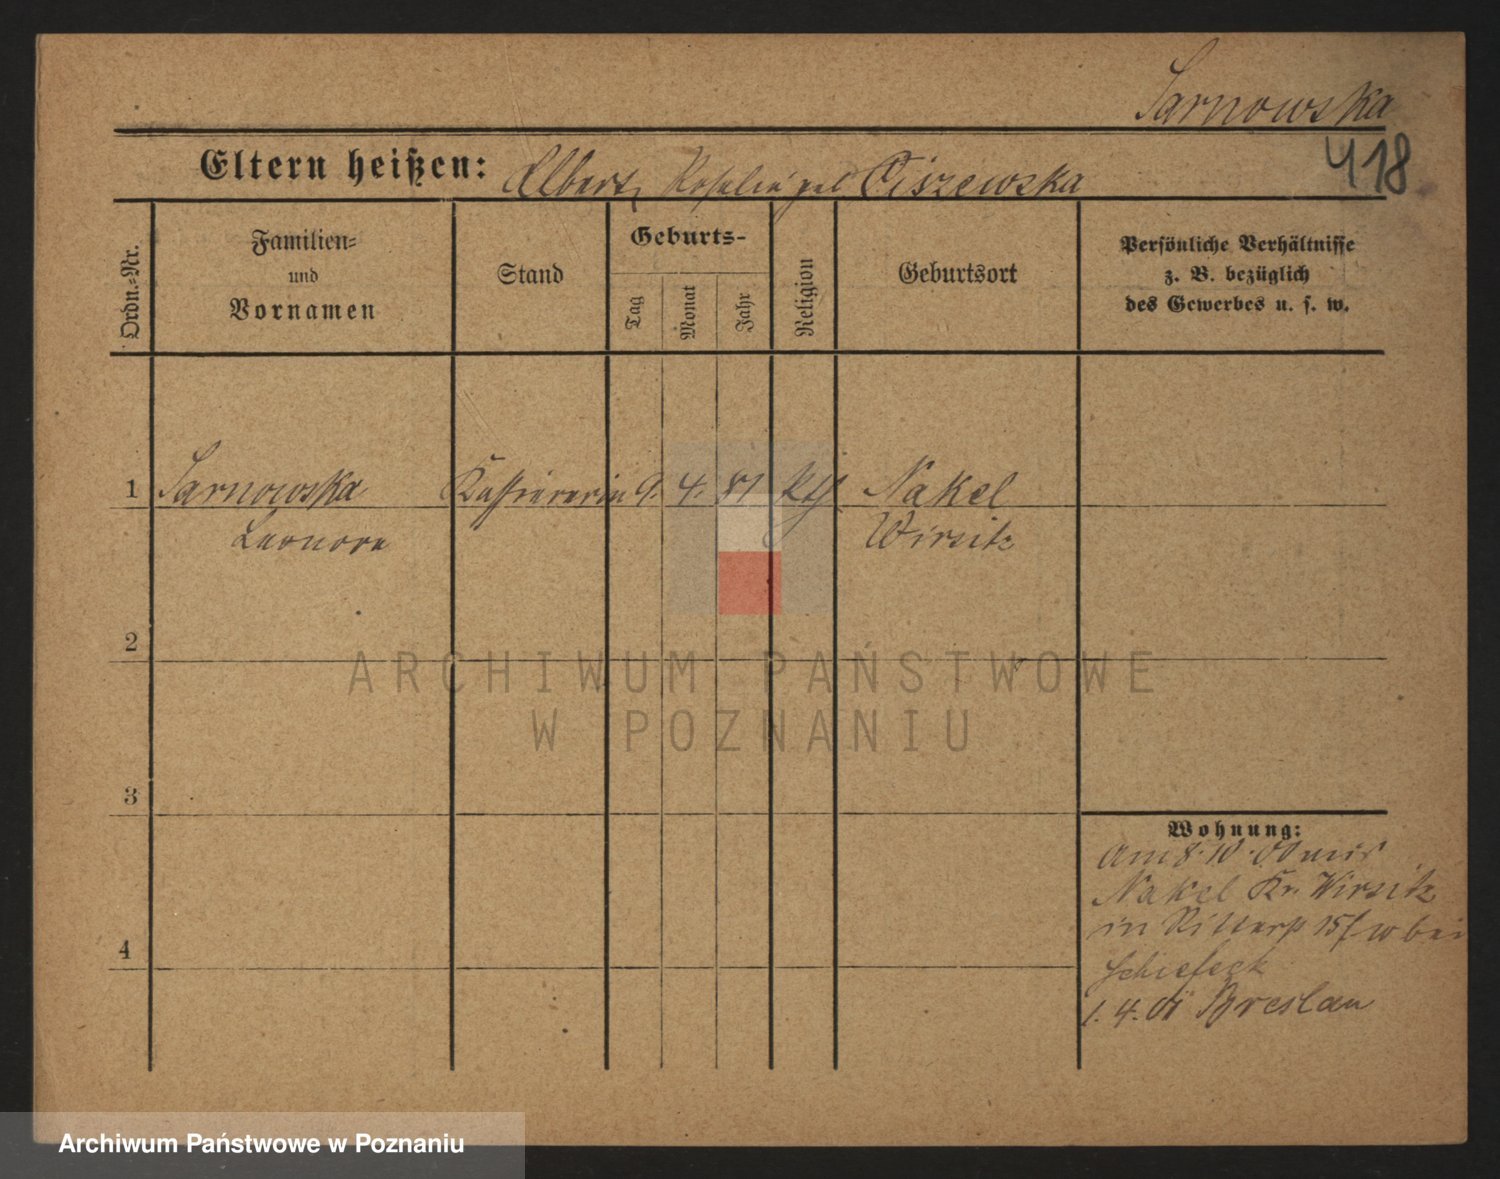 Sarnowska
418
Eltern heißen: Albert, Rosalie geb. Ciszewska
Ordn.-Nr.
Familien-
und
Vornamen
Stand
Geburts-
Tag
Monat
Jahr
Religion
Geburtsort
Persönliche Verhältnisse
z. B. bezüglich
des Gewerbes u. s. w.
1 Sarnowska Kassirerin 9. 4. 81 kth Nakel
Leonore Wirsitz
2
3
4
Wohnung:
Am 8. 10. 00 aus
Nakel Kr. Wirsitz
in Ritterst 15 bei
1. 4. 01 Breslau
ARCHIWUM PAŃSTWOWE
W POZNANIU
Archiwum Państwowe w Poznaniu